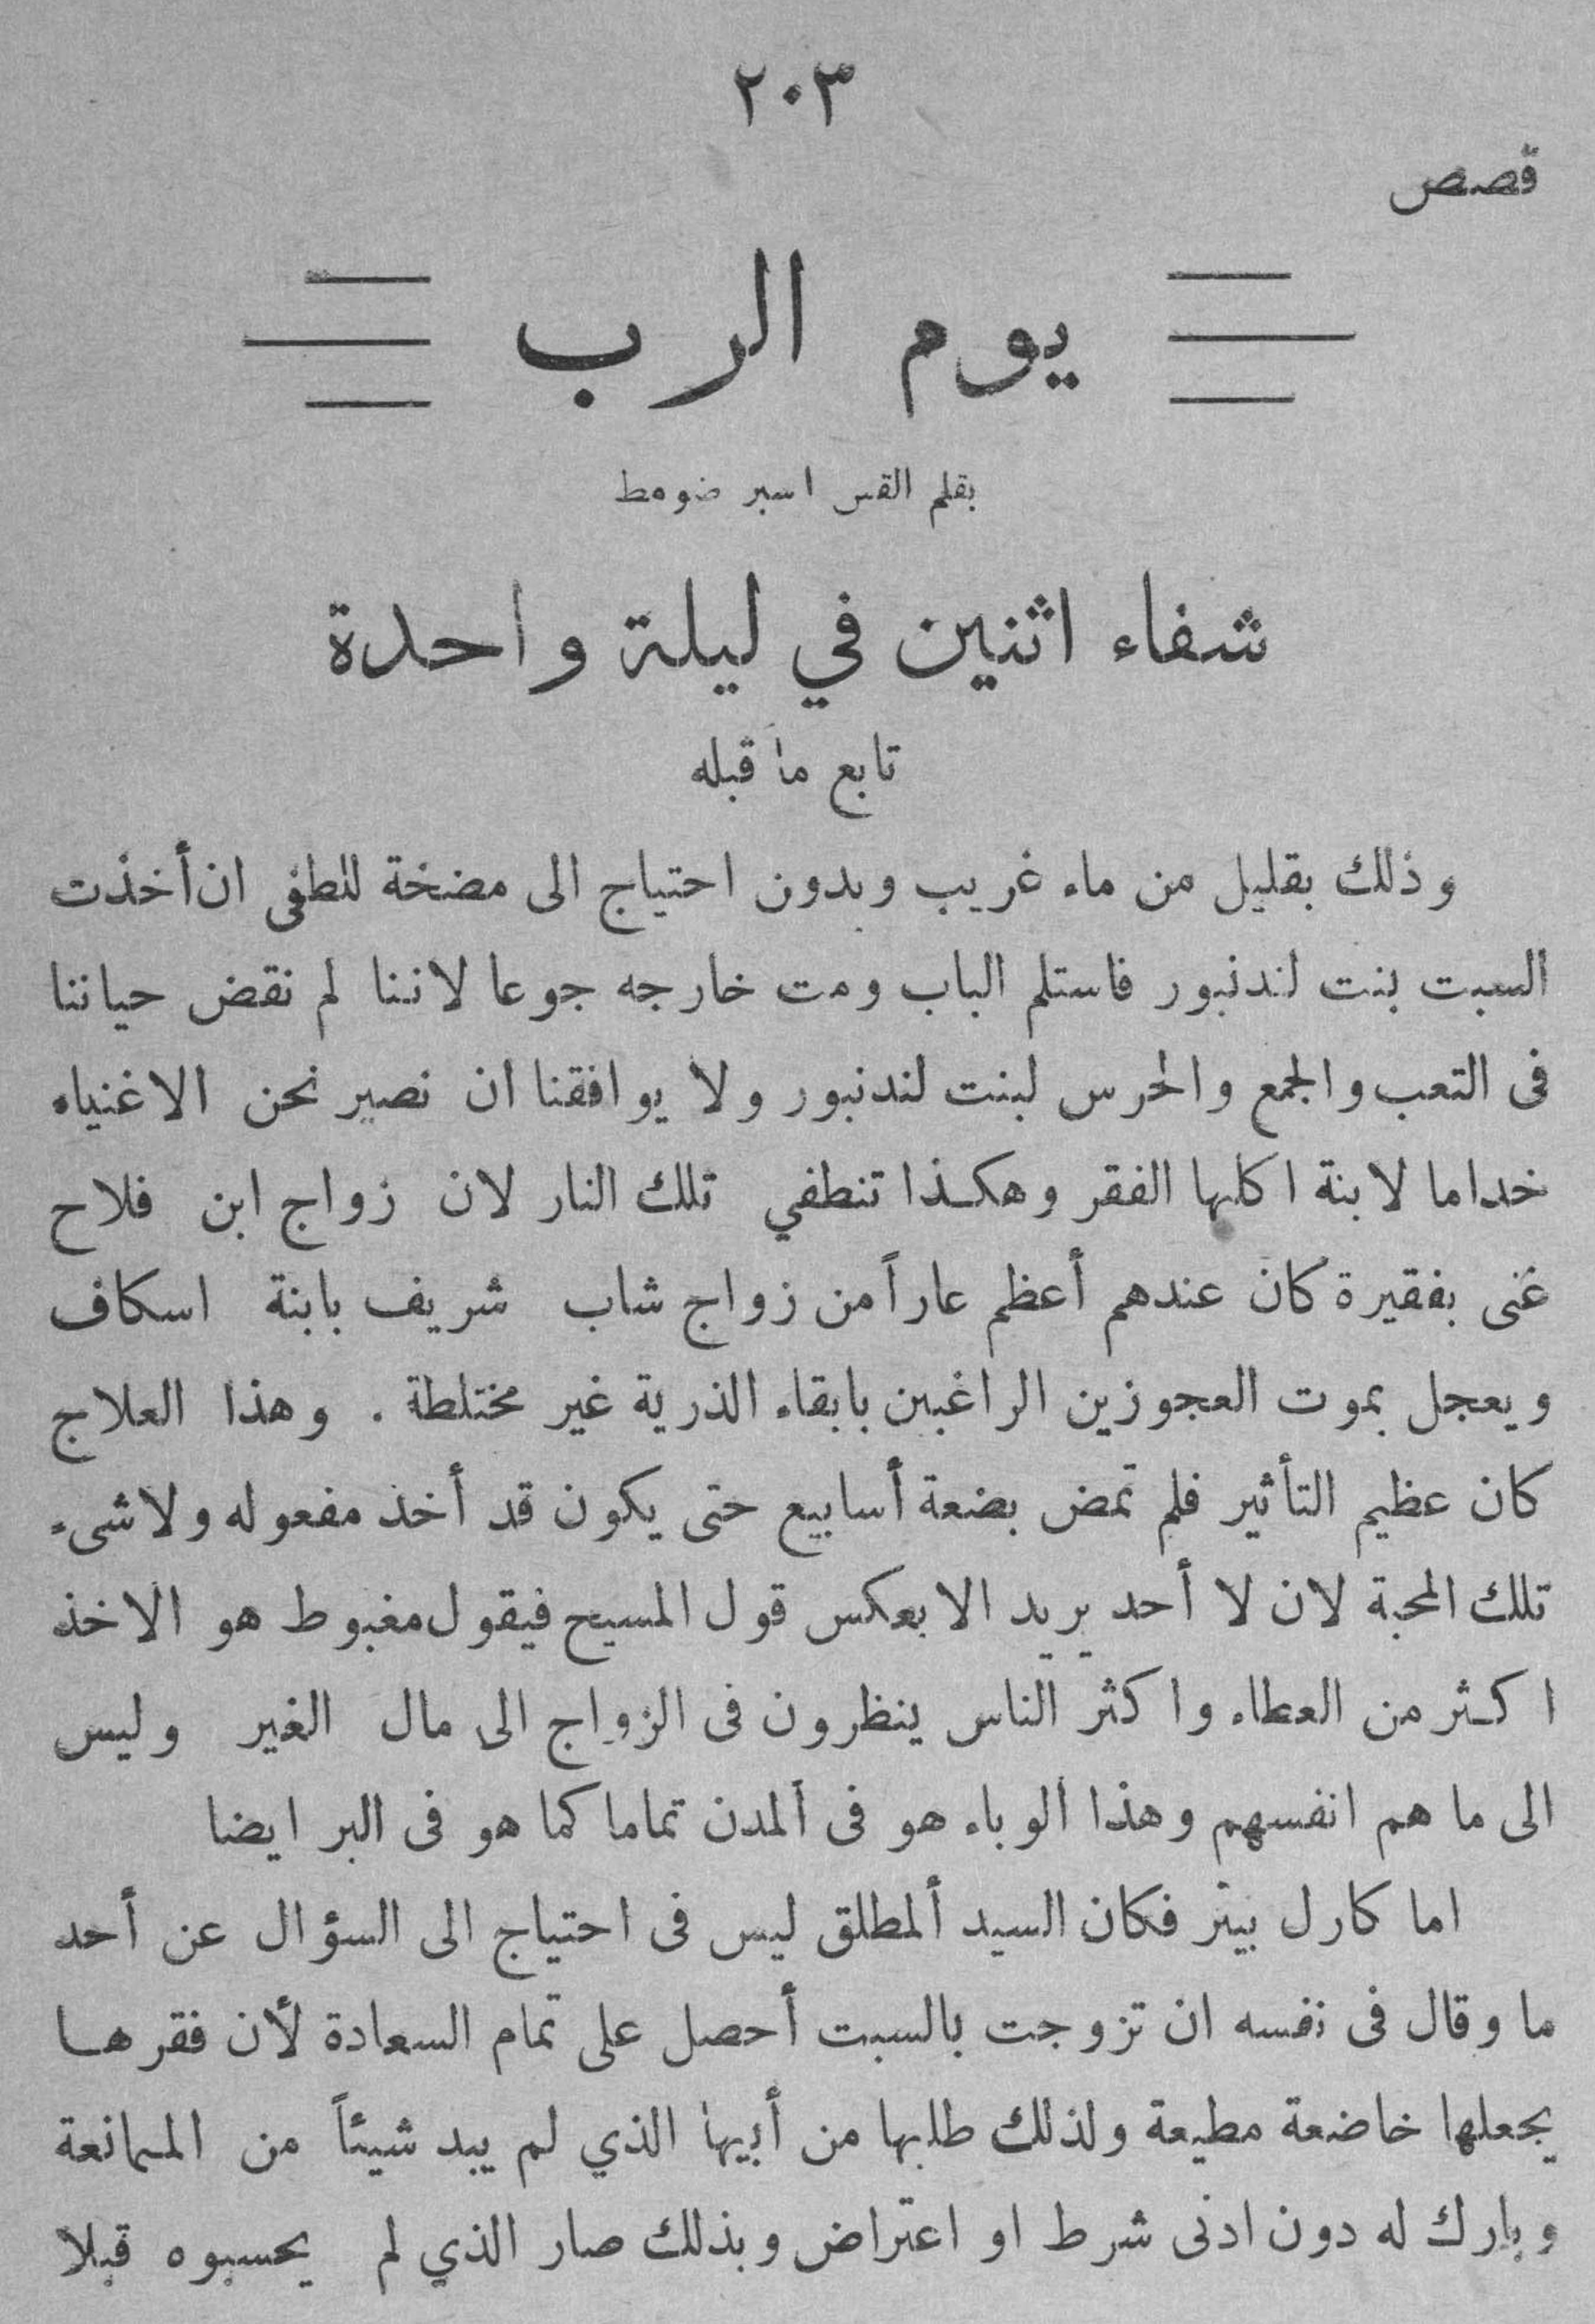 ٢٠٣
قصص
يوم الرب
بقلم القس اسبر ضومط
شفاء اثنين في ليلة واحدة
تابع ما قبله
وذلك بقليل من ماء غريب وبدون احتياج الى مضخة للطفى ان أخذت
السبت بنت لندنبور فاستلم الباب ومت خارجه جوعا لاننا لم نقض حياتنا
فى التعب والجمع والحرس لبنت لندنبور ولا يوافقنا ان نصير نحن الاغنياء
خداما لابنة اكلها الفقر وهكذا تنطفي تلك النار لان زواج ابن فلاح
غنى بفقيرة كان عندهم أعظم عاراً من زواج شاب شريف بابنة اسكاف
ويعجل بموت العجوزين الراغبين بابقاء الذرية غير مختلطة . وهذا العلاج
كان عظيم التأثير فلم تمض بضعة أسابيع حتى يكون قد أخذ مفعوله ولاشىء
تلك المحبة لان لا أحد يريد الا بعكس قول المسيح فيقول مغبوط هو الاخذ
اكثر من العطاء واكثر الناس ينظرون فى الزواج الى مال الغير وليس
الى ما هم انفسهم وهذا الوباء هو فى المدن تماما كما هو فى البر ايضا
اما كارل بيتر فكان السيد ألمطلق ليس فى احتياج الى السؤال عن أحد
ما وقال فى نفسه ان تزوجت بالسبت أحصل على تمام السعادة لأن فقرها
يجعلها خاضعة مطيعة ولذلك طلبها من أبيها الذي لم يبد شيئاً من الممانعة
وبارك له دون ادنى شرط او اعتراض وبذلك صار الذي لم يحسبوه قبلا